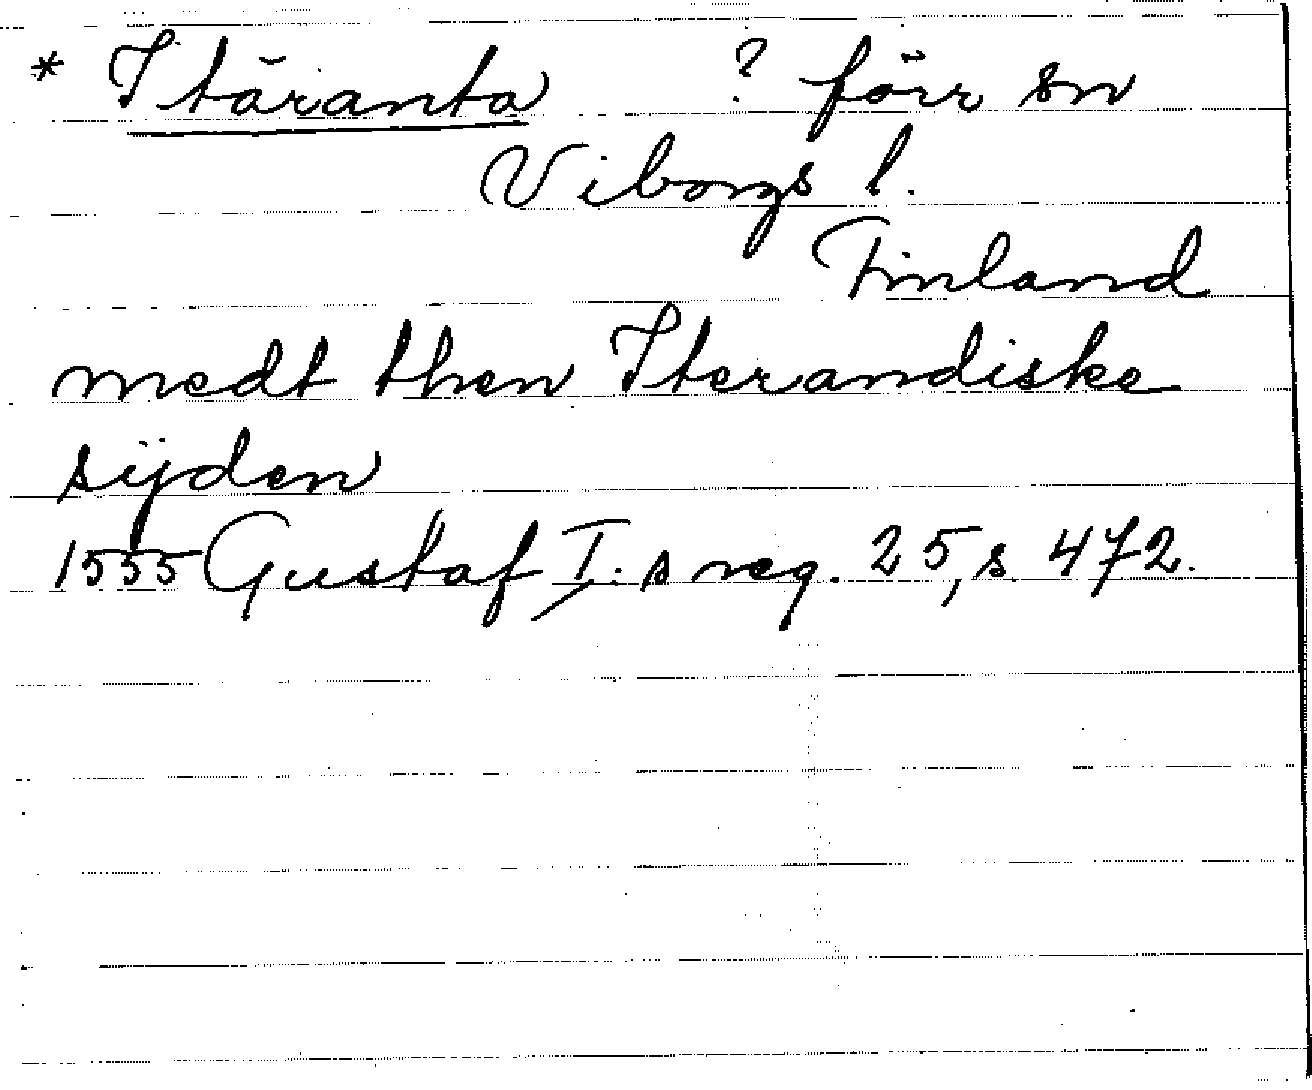 * Itäranta ? förr sn
Viborgs l.
Finland
medt then Iterandiske
sijden
1555 Gustaf I:s reg. 25, s. 472.